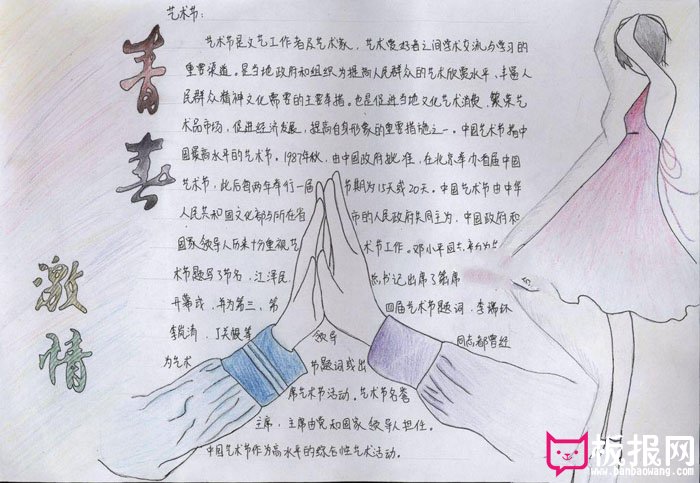 青春
激情
艺术节：
艺术节是文艺工作者及艺术家，艺术爱好者之间学术交流与学习的
重要渠道。是当地政府和组织为提高人民群众的艺术欣赏水平，丰富人
民群众精神文化需要的主要手措。也是促进当地文化艺术消费，繁荣艺
术品市场，促进经济发展，提高自身形象的重要措施之一。中国艺术节指中
国最高水平的艺术节。1987年秋，由中国政府批准，在北京举办首届中国
艺术节，此后每两年举行一届 节期为15天或20天。中国艺术节由中华
人民共和国文化部与所在省 市的人民政府共同主办，中国政府和
国家领导人历来十分重视艺 术节工作。邓小平同志
术节题写了节名，江泽民 总书记出席了第
开幕式，并为第三、第 四届艺术节题词，李瑞环
李岚清，丁关根等 领导 同志都曾经
为艺术 节题词或出
席艺术节活动。艺术节名誉
主席，主席由党和国家领导人担任。
中国艺术节作为高水平的综合性艺术活动。
板报网
www.banbaowang.com